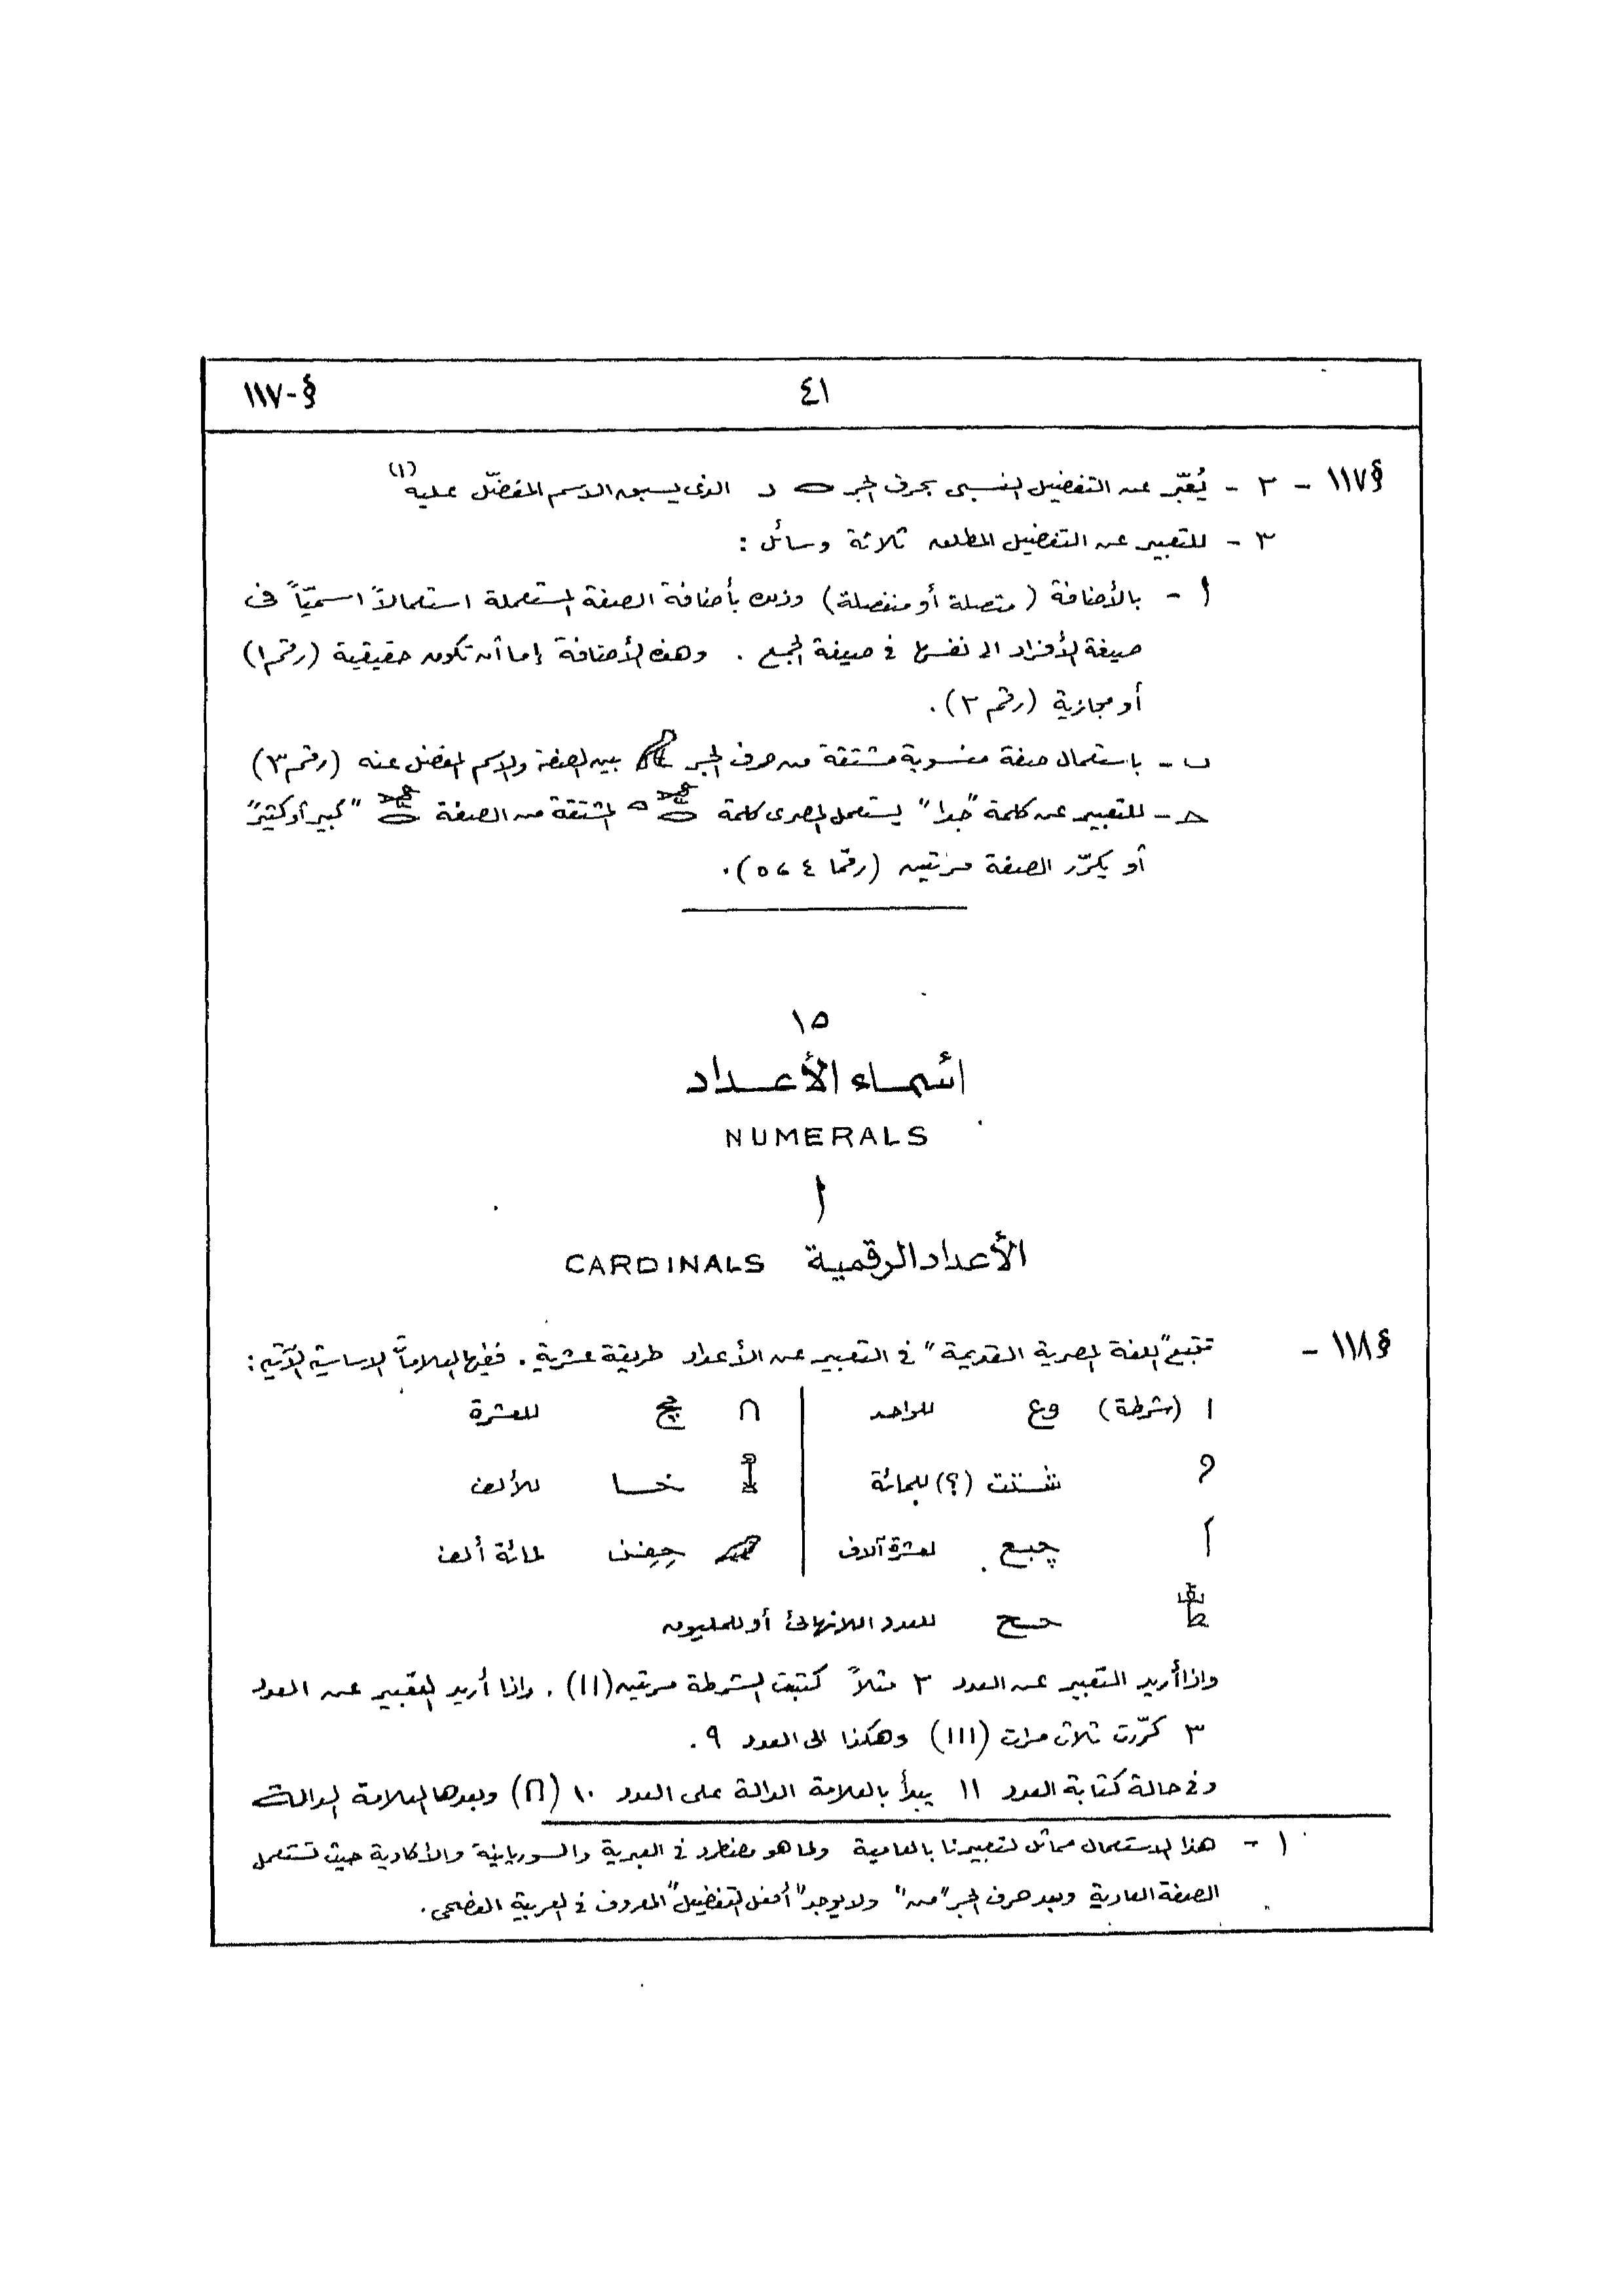 §-١١٧ ٤١
§١١٧ - ٢ - يُعَبّر عن التفضيل النسبى بحرف الجر 𓂋 ر الذى يسبق الاسم المفضّل عليه (١)
٣ - للتعبير عن التفضيل المطلق ثلاثة وسائل :
ا - بالأضافة (متصلة أو منفصلة) وذلك بأضافة الصفة المستعملة استعمالاً اسميّاً فى
صيغة الأفراد الى نفسها فى صيغة الجمع . وهذه الأضافة إما أن تكون حقيقية (رقم ١)
أو مجازية (رقم ٢) .
ب - باستعمال صفة منسوبة مشتقة من حرف الجر بين الصفة والاسم المفضل عنه (رقم ٣)
ح - للتعبير عن كلمة "جدا" يستعمل المصرى كلمة المشتقة من الصفة "كبير أو كثير"
أو يكرّر الصفة مرتين (رقما ٤ ، ٥) .
١٥
اسماء الأعداد
NUMERALS
ا
الأعداد الرقمية CARDINALS
§١١٨ - تتبع "اللغة المصرية القديمة" فى التعبير عن الأعداد طريقة عشرية . ففيها العلامات الاساسية الآتية :
ا (شرطة) وع للواحد 𓎆 للعشرة
𓍢 شنت (؟) للمائة 𓆼 خا للألف
𓂭 چبع لعشرة آلاف 𓆐 حِفِن لمائة ألف
𓁨 حح للعدد اللانهائى أو للمليون
واذا أريد التعبير عن العدد ٢ مثلاً كتبت الشرطة مرتين (II) . واذا أريد التعبير عن العدد
٣ كرّرت ثلاث مرات (III) وهكذا الى العدد ٩ .
وفى حالة كتابة العدد ١١ يبدأ بالعلامة الدالة على العدد ١٠ (𓎆) وبعدها العلامة الدالة
١ - هذا الاستعمال مماثل لتعبيرنا بالعامية ولما هو مضطرد فى العبرية والسوريانية والأكادية حيث تستعمل
الصفة العادية وبعد حرف الجر "من" ولا يوجد "أفعل التفضيل" المعروف فى العربية الفصحى .